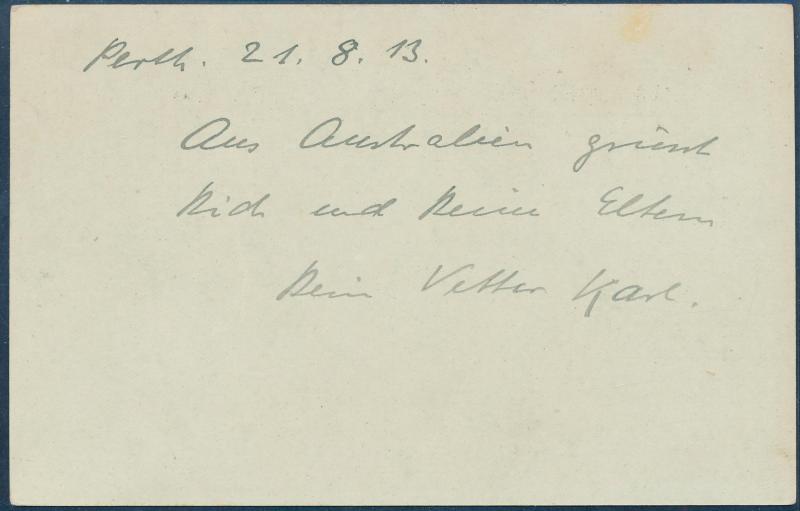 Perth. 21. 8. 13.
Aus Australien grüsst
Dich und Deine Eltern
Dein Vetter Karl.